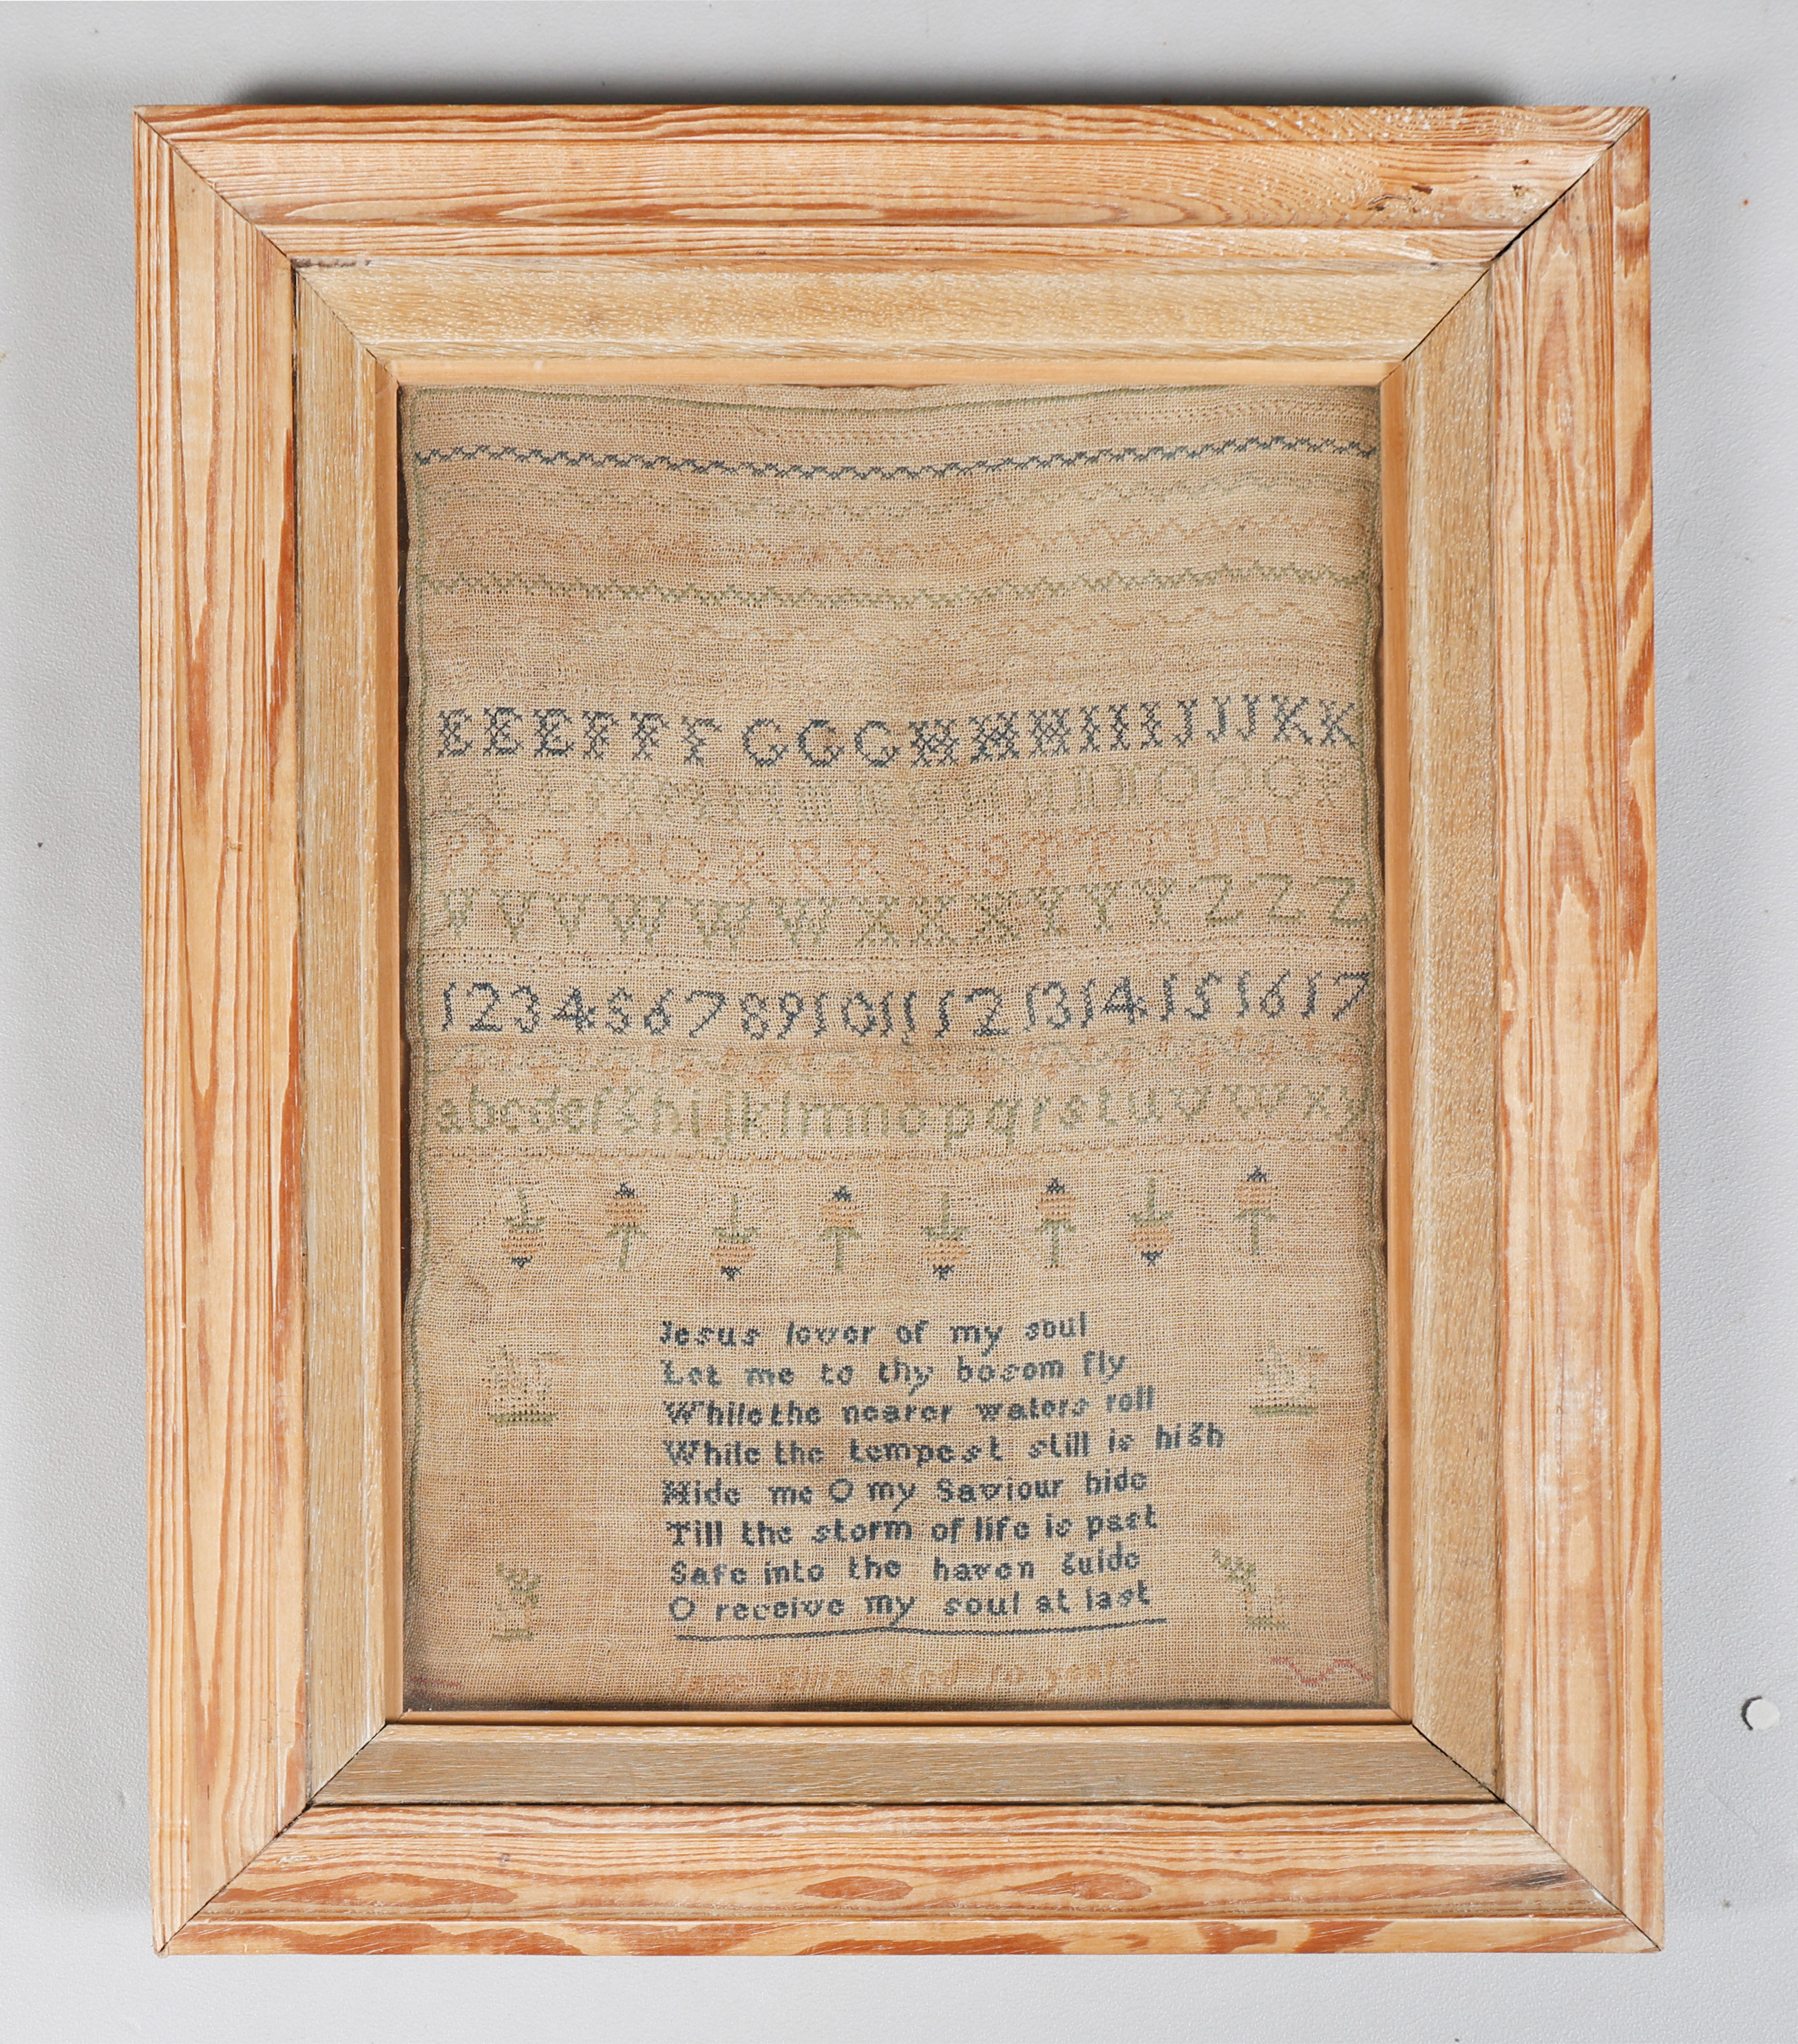 EEEFFFGGGHHHIIIJJJKK
LLLMMMNNNOOOP
PPQQQRRRSSSTTTUUU
VVVWWWXXXYYYZZZ
1234567891011 12 1314 15 16 17
abcdefghijklmnopqrstuvwxy
Jesus lover of my soul
Let me to thy bosom fly
While the nearer waters roll
While the tempest still is high
Hide me O my Saviour hide
Till the storm of life is past
Safe into the haven guide
O receive my soul at last
aged 10 years